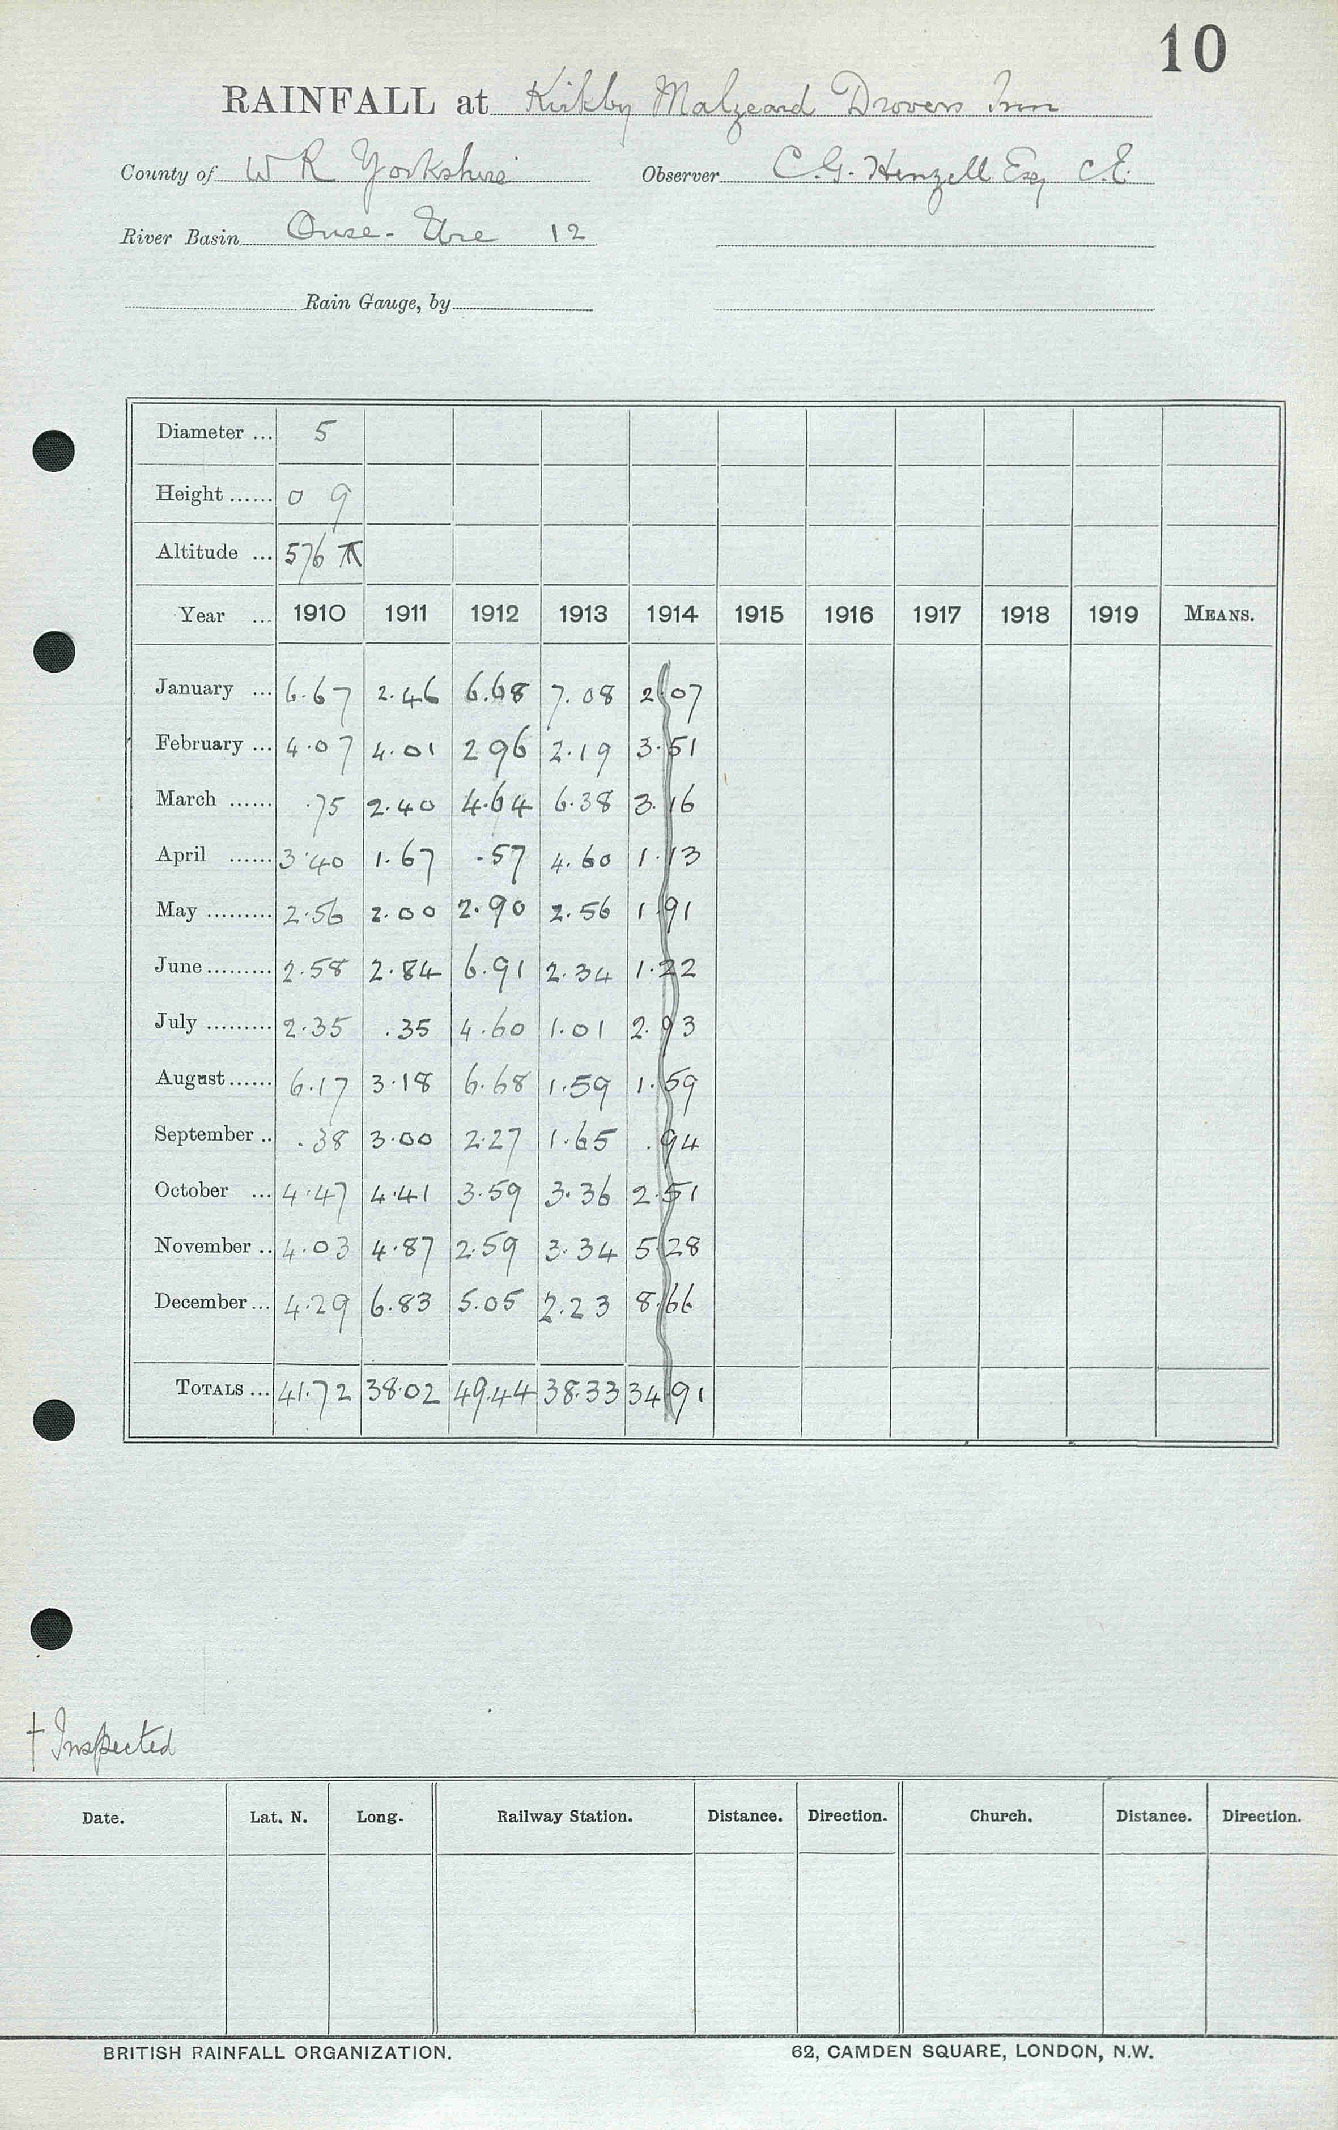 10
RAINFALL at Kirkby Malzeard Drovers Inn
County of W R Yorkshire Observer C. G. Henzell Esq C.E.
River Basin Ouse - Ure 12
Rain Gauge, by
Diameter ... 5
Height ...... 0 9
Altitude ... 576
Year ... 1910 1911 1912 1913 1914 1915 1916 1917 1918 1919 MEANS.
January ... 6.67 2.46 6.68 7.08 2.07
February ... 4.07 4.01 2 96 2.19 3.51
March ...... .75 2.40 4.64 6.38 3.16
April ...... 3.40 1.67 .57 4.60 1.13
May ......... 2.56 2.00 2.90 2.56 1.91
June ......... 2.58 2.84 6.91 2.34 1.22
July ......... 2.35 .35 4.60 1.01 2.93
August ...... 6.17 3.18 6.68 1.59 1.59
September .. .38 3.00 2.27 1.65 .94
October ... 4.47 4.41 3.59 3.36 2.51
November .. 4.03 4.87 2.59 3.34 5.28
December ... 4.29 6.83 5.05 2.23 8.66
TOTALS ... 41.72 38.02 49.44 38.33 34.91
† Inspected
Date. Lat. N. Long. Railway Station. Distance. Direction. Church. Distance. Direction.
BRITISH RAINFALL ORGANIZATION. 62, CAMDEN SQUARE, LONDON, N.W.